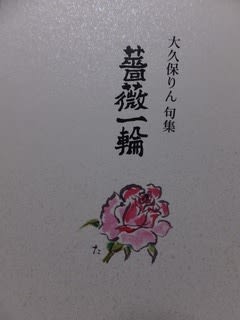 大久保りん 句集
薔薇一輪
た